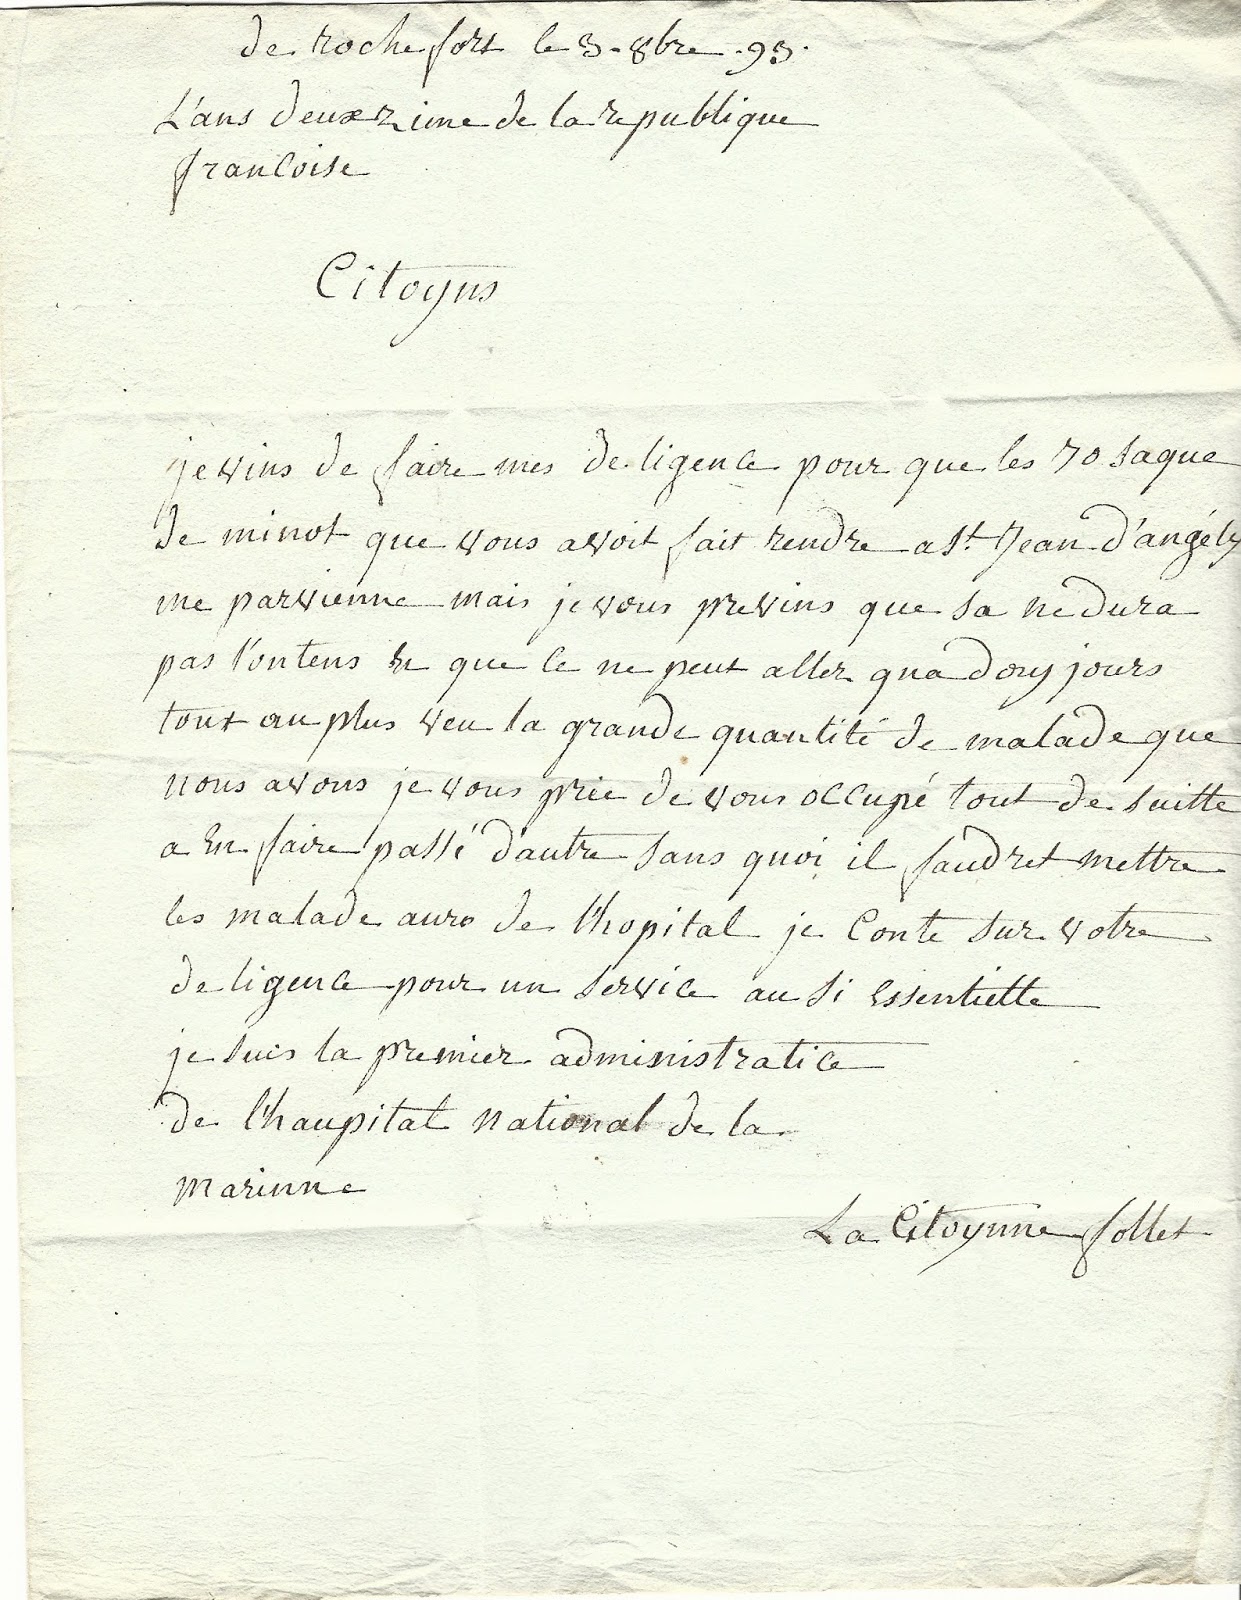 de rochefort le 3. 8bre .93.
L'ans deuxzime de la republique
francoise
Citoyns
je vins de faire mes deligence pour que les 70 saque
de minot que vous avoit fait rendre a St. Jean d'angély
me parvienne mais je vous previns que sa ne dura
pas lontens et que ce ne peut aller qua douy jours
tout au plus veu la grande quantité de malade que
nous avons je vous prie de vous occupé tout de suitte
a En faire passé dautre sans quoi il faudret mettre
les malade auro de l'hopital je Conte sur votre
deligence pour un service au si Essentielle
je suis la premier administratice
de l'haupital national de la
marinne
La Citoynne follet